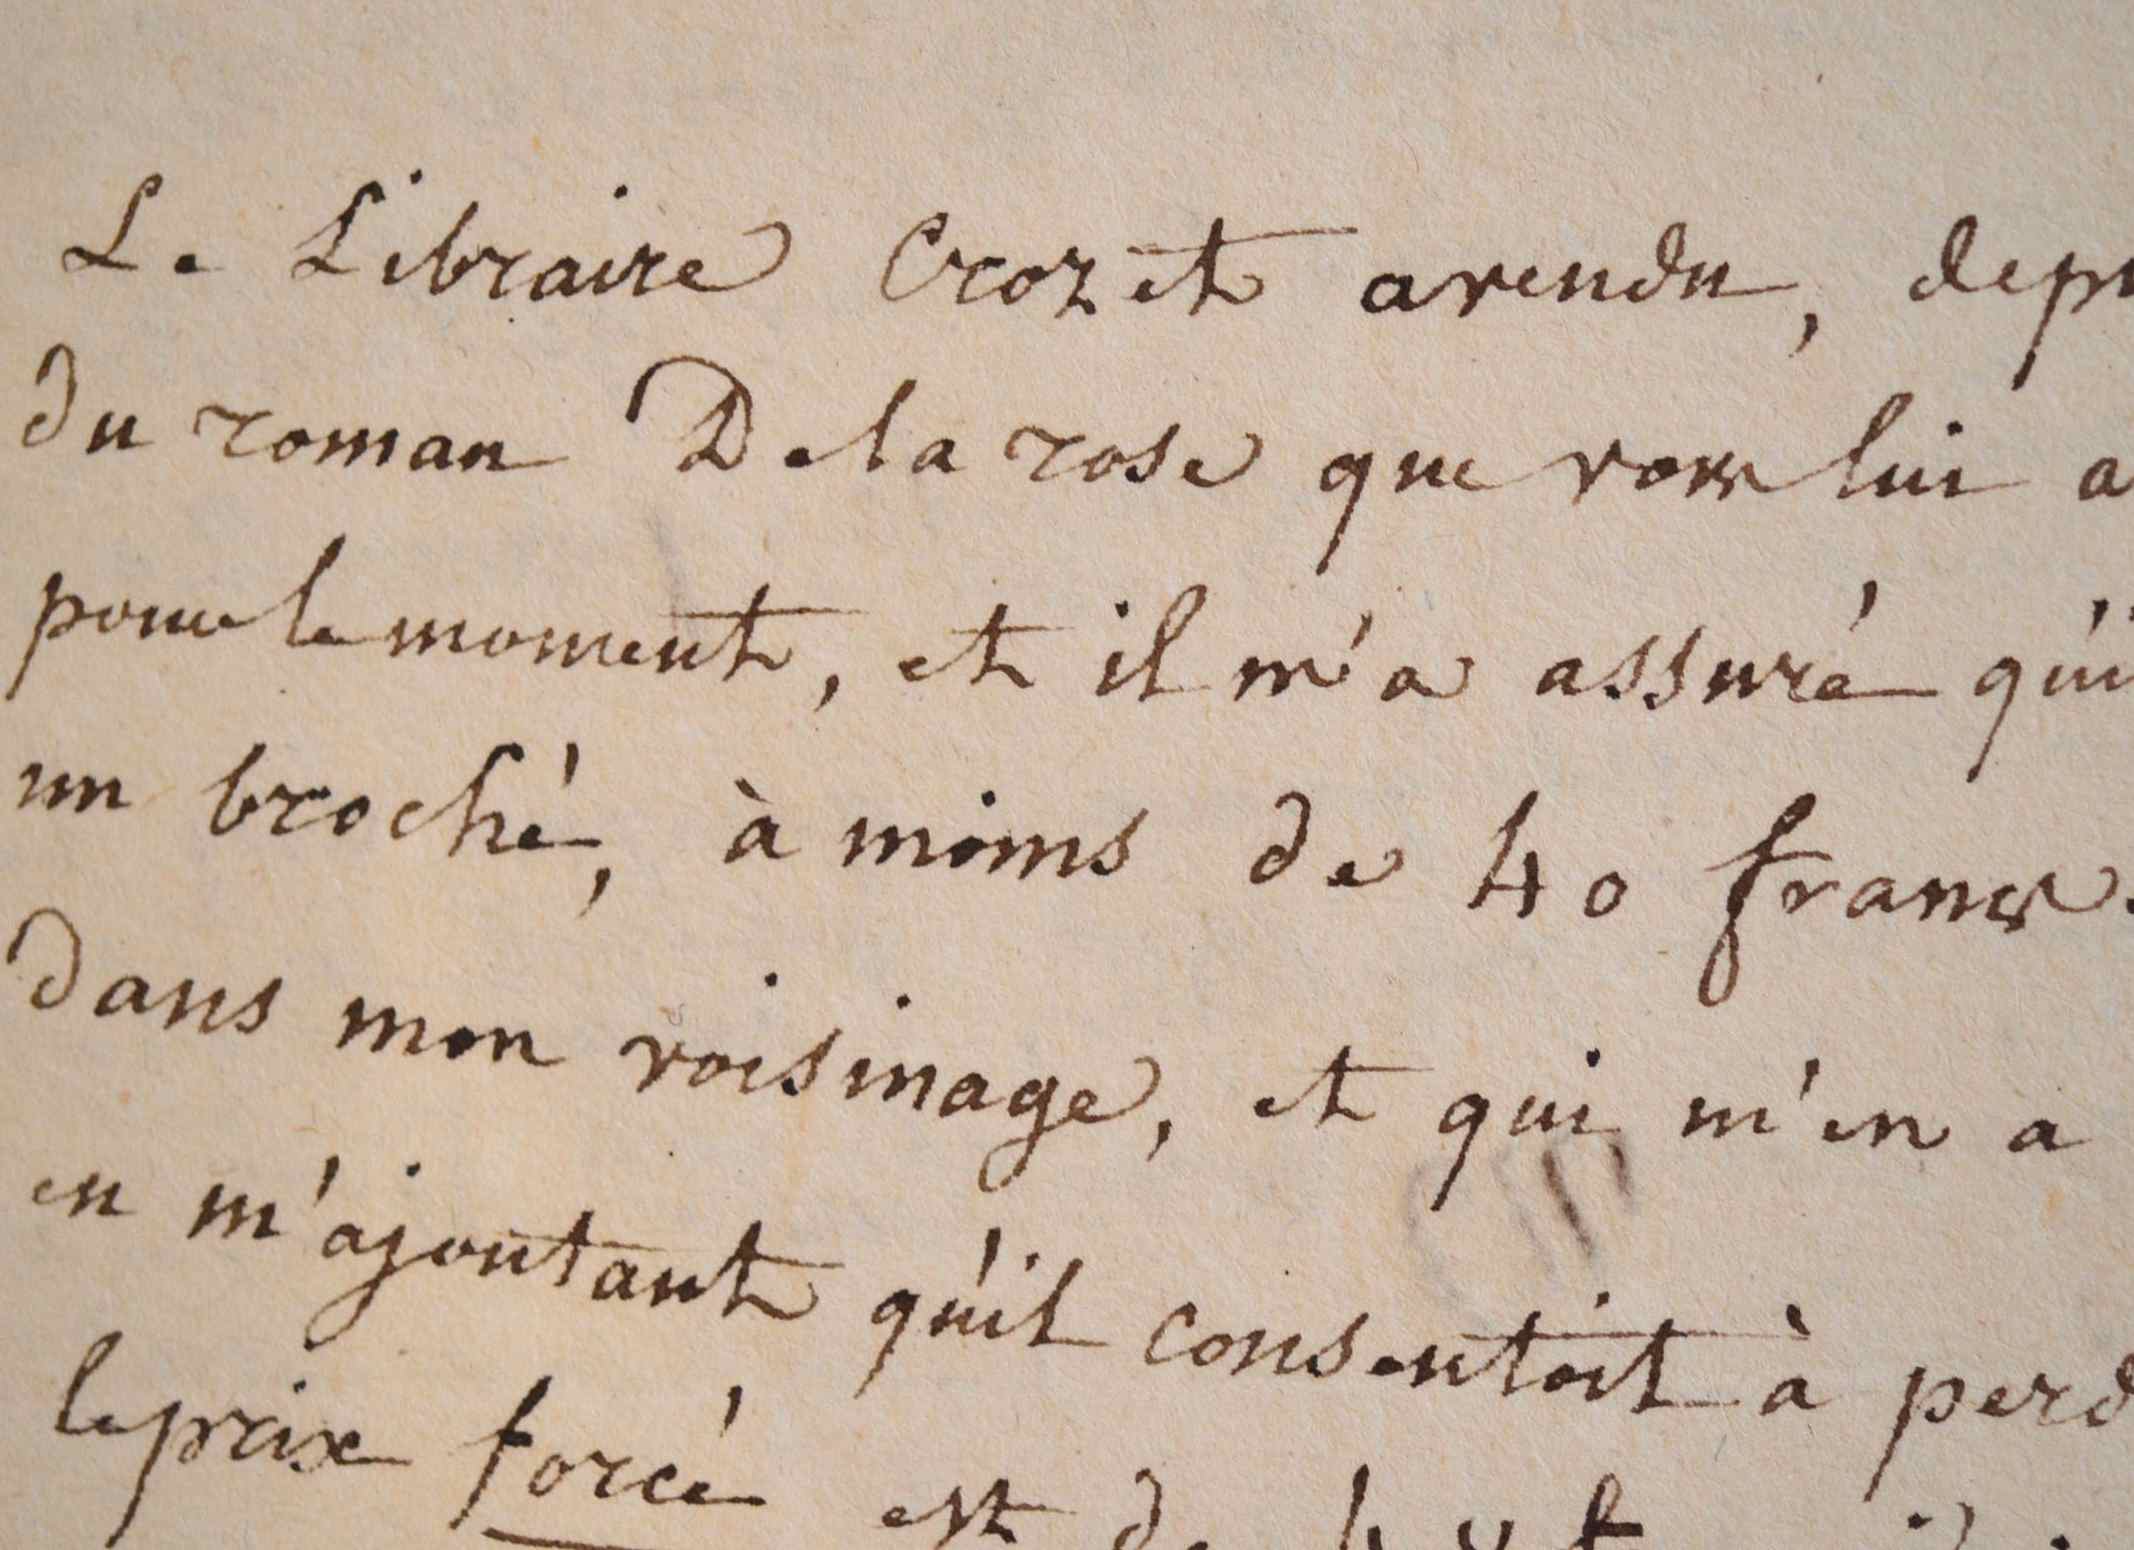 Le Libraire Crozet a vendu, dep
du roman De la rose que vous lui a
pour le moment, et il m'a assuré qu'i
un broché, à moins de 40 francs.
dans mon voisinage, et qui m'en a
en m'ajoutant qu'il consentoit à perd
le prix forcé est de